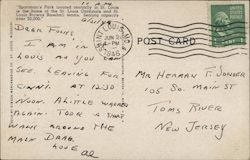 11 AM
"Sportsman's Park located centrally in St. Louis
is the home of the St. Louis Cardinals and St.
Louis Browns Baseball teams. Seating capacity
over 30,000."
Dear Folks,
I am in
St. Louis as you can
see. Leaving for
Cinni. at 12:30
Noon. A little warmer
again. Took a short
walk around the
main drag.
Love
Al
ST. LOUIS, MO.
JUN 2
PM
1946
POST CARD
Mr Herman F.
105 So. Main St
Toms River
New Jersey